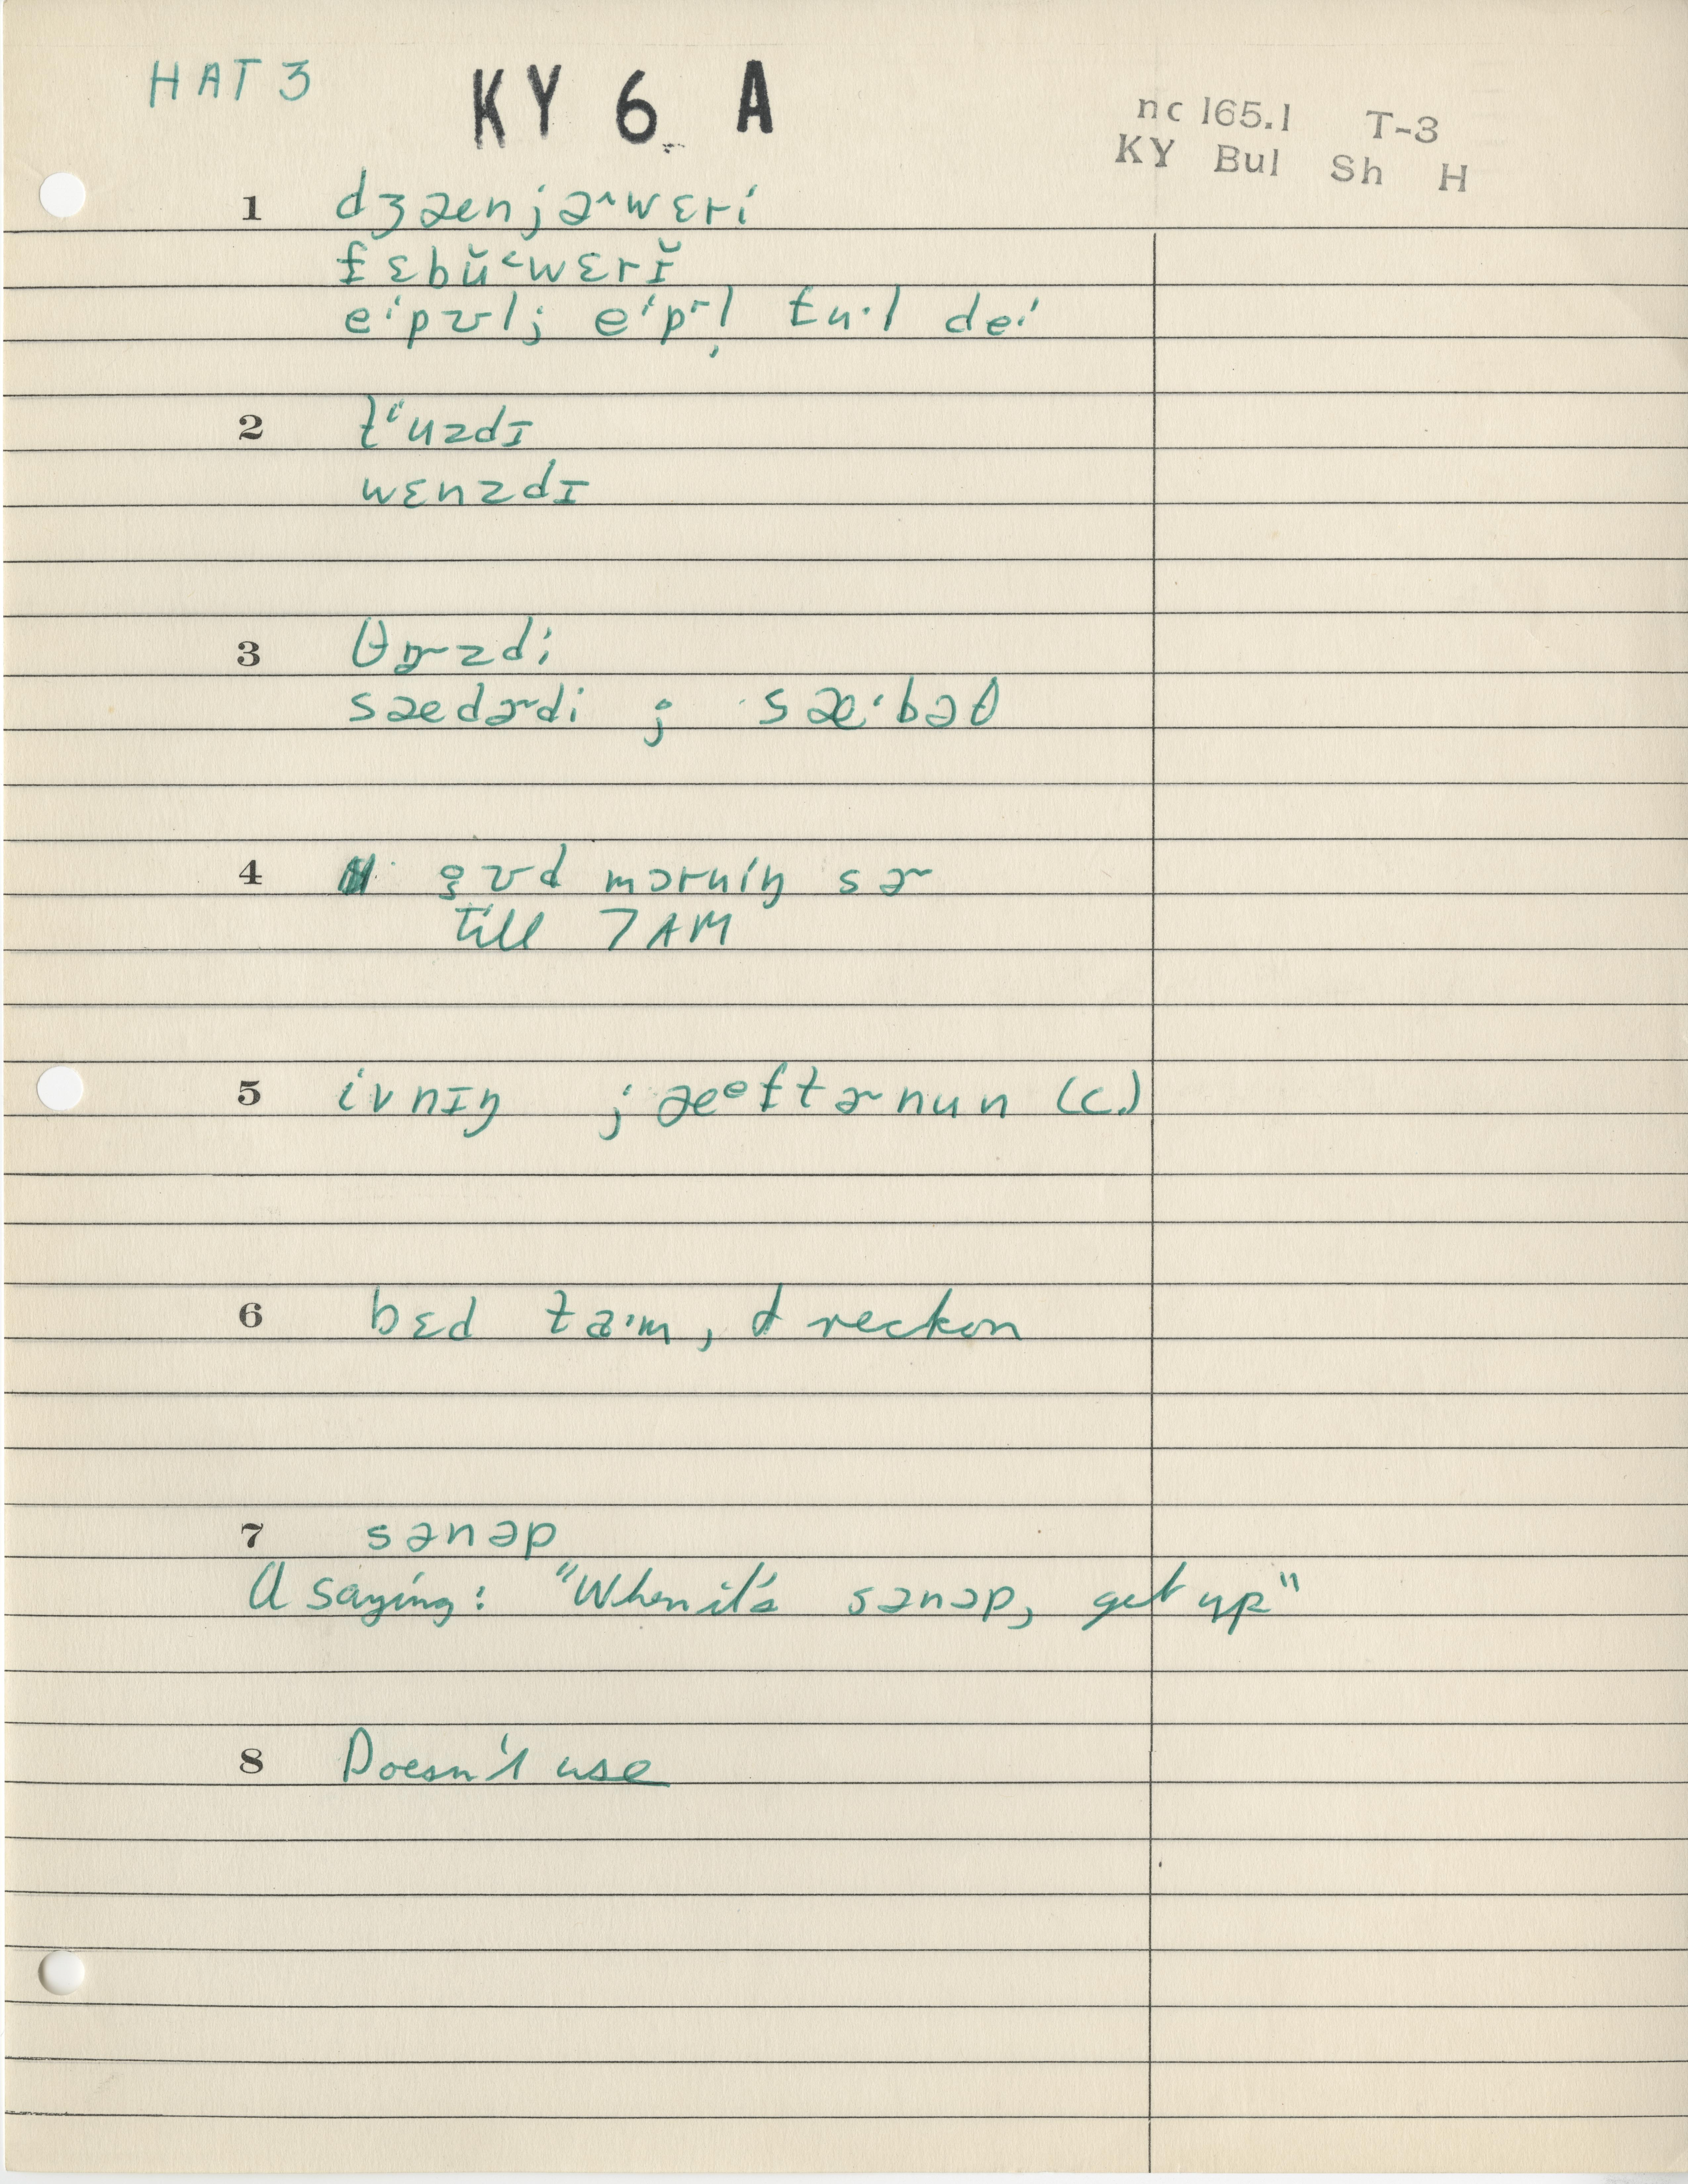 HAT 3 KY 6 A
nc 165.1 T-3
KY Bul Sh H
1 dʒænjɚwɛri
fɛbŭ˂wɛrɪ̆
eⁱpʊl; eⁱpr̩l fu·l deⁱ
2 tⁱuzdɪ
wɛnzdɪ
3 θɝzdi
sædɚdi ; sæ·bəθ
4 gʊd mɔrniŋ sɚ
till 7 AM
5 ivnɪŋ ; æᵊftɚnun (c.)
6 bɛd ta·m, I reckon
7 sənəp
A saying: "When it's sənəp, get up"
8 Doesn't use